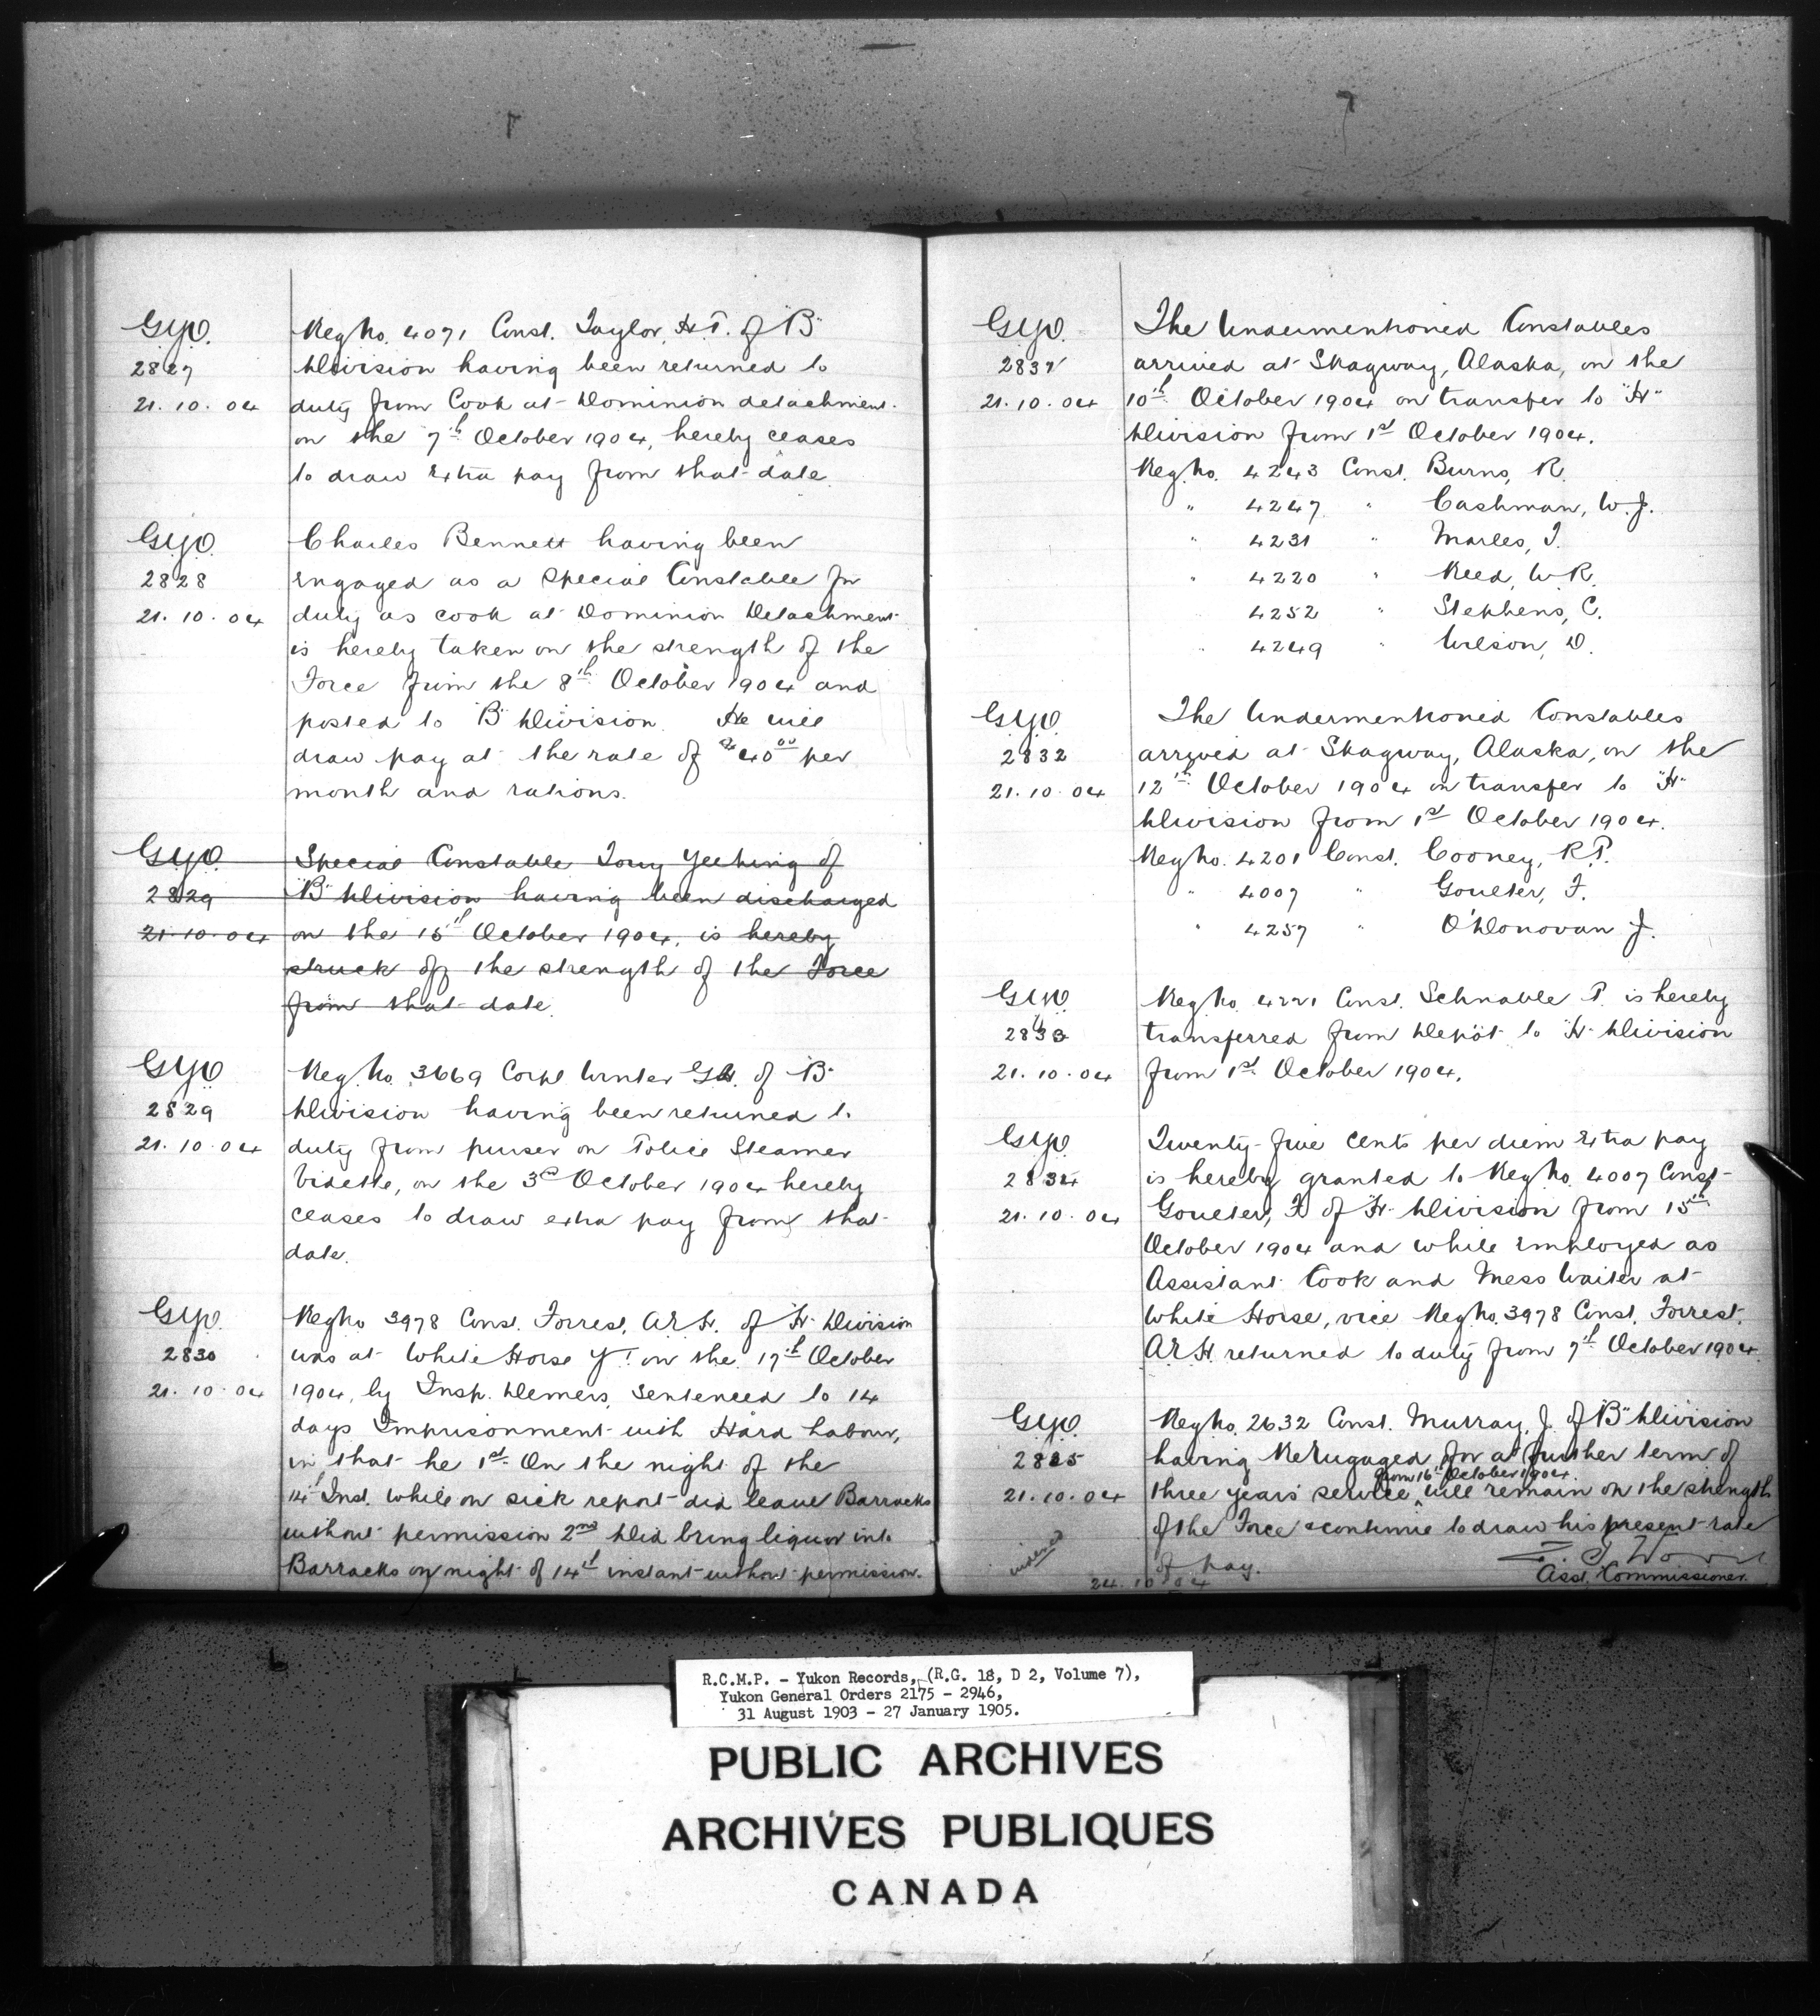 G.Y.O.
2827
21.10.04
Reg No. 4071 Const. Taylor, H.T. of "B"
Division having been returned to
duty from Cook at Dominion detachment
on the 7th October 1904, hereby ceases
to draw extra pay from that date.
G.Y.O.
2828
21.10.04
Charles Bennett having been
engaged as a Special Constable for
duty as cook at Dominion Detachment
is hereby taken on the strength of the
Force from the 8th October 1904 and
posted to "B" Division. He will
draw pay at the rate of $40.00 per
month and rations.
G.Y.O.
2829
21.10.04
Special Constable Tony Yeehing of
"B" Division having been discharged
on the 15th October 1904, is hereby
struck off the strength of the Force
from that date.
G.Y.O.
2829
21.10.04
Reg. No. 3669 Corpl Winter G.H. of "B"
Division having been returned to
duty from purser on Police Steamer
Vidette, on the 3rd October 1904 hereby
ceases to draw extra pay from that
date.
G.Y.O.
2830
21.10.04
Reg No 3978 Const. Forrest, A.R.H. of "H" Division
was at White Horse Y.T. on the 17th October
1904, by Insp. Demers, Sentenced to 14
days Imprisonment with Hard Labour,
in that he 1st On the night of the
14th Inst. while on sick report did leave Barracks
without permission 2nd Did bring liquor into
Barracks on night of 14th instant without permission.
G.Y.O.
2831
21.10.04
The Undermentioned Constables
arrived at Skagway, Alaska, on the
10th October 1904 on transfer to "H"
Division from 1st October 1904.
Reg. No. 4243 Const. Burns, R.
" 4247 " Cashman, W.J.
" 4231 " Marles, T.
" 4220 " Reed, W.R.
4252 " Stephens, C.
" 4249 " Wilson, D.
G.Y.O.
2832
21.10.04
The Undermentioned Constables
arrived at Skagway, Alaska, on the
12th October 1904 on transfer to "H"
Division from 1st October 1904.
Reg No. 4201 Const. Cooney, R.P.
" 4007 " Goulter, F.
" 4257 " O'Donovan J.
G.Y.O.
2833
21.10.04
Reg No. 4221 Const. Schnable P. is hereby
transferred from Depôt to "H" Division
from 1st October 1904.
G.Y.O.
2834
21.10.04
Twenty-five cents per diem extra pay
is hereby granted to Reg No. 4007 Const
Goulter, F. of "H" Division from 15th
October 1904 and while employed as
Assistant Cook and Mess Waiter at
White Horse, vice Reg. No. 3978 Const. Forrest,
A.R.H. returned to duty from 7th October 1904.
G.Y.O.
2835
21.10.04
Reg No. 2632 Const. Murray, J. of "B" Division
having ReEngaged for a further term of
from 16th October 1904.
three years' service ^ will remain on the strength
of the Force & continue to draw his present rate
of pay.
indexed
24.10.04
Z. T. Wood
Asst. Commissioner.
R.C.M.P. - Yukon Records, (R.G. 18, D 2, Volume 7),
Yukon General Orders 2175 - 2946,
31 August 1903 - 27 January 1905.
PUBLIC ARCHIVES
ARCHIVES PUBLIQUES
CANADA